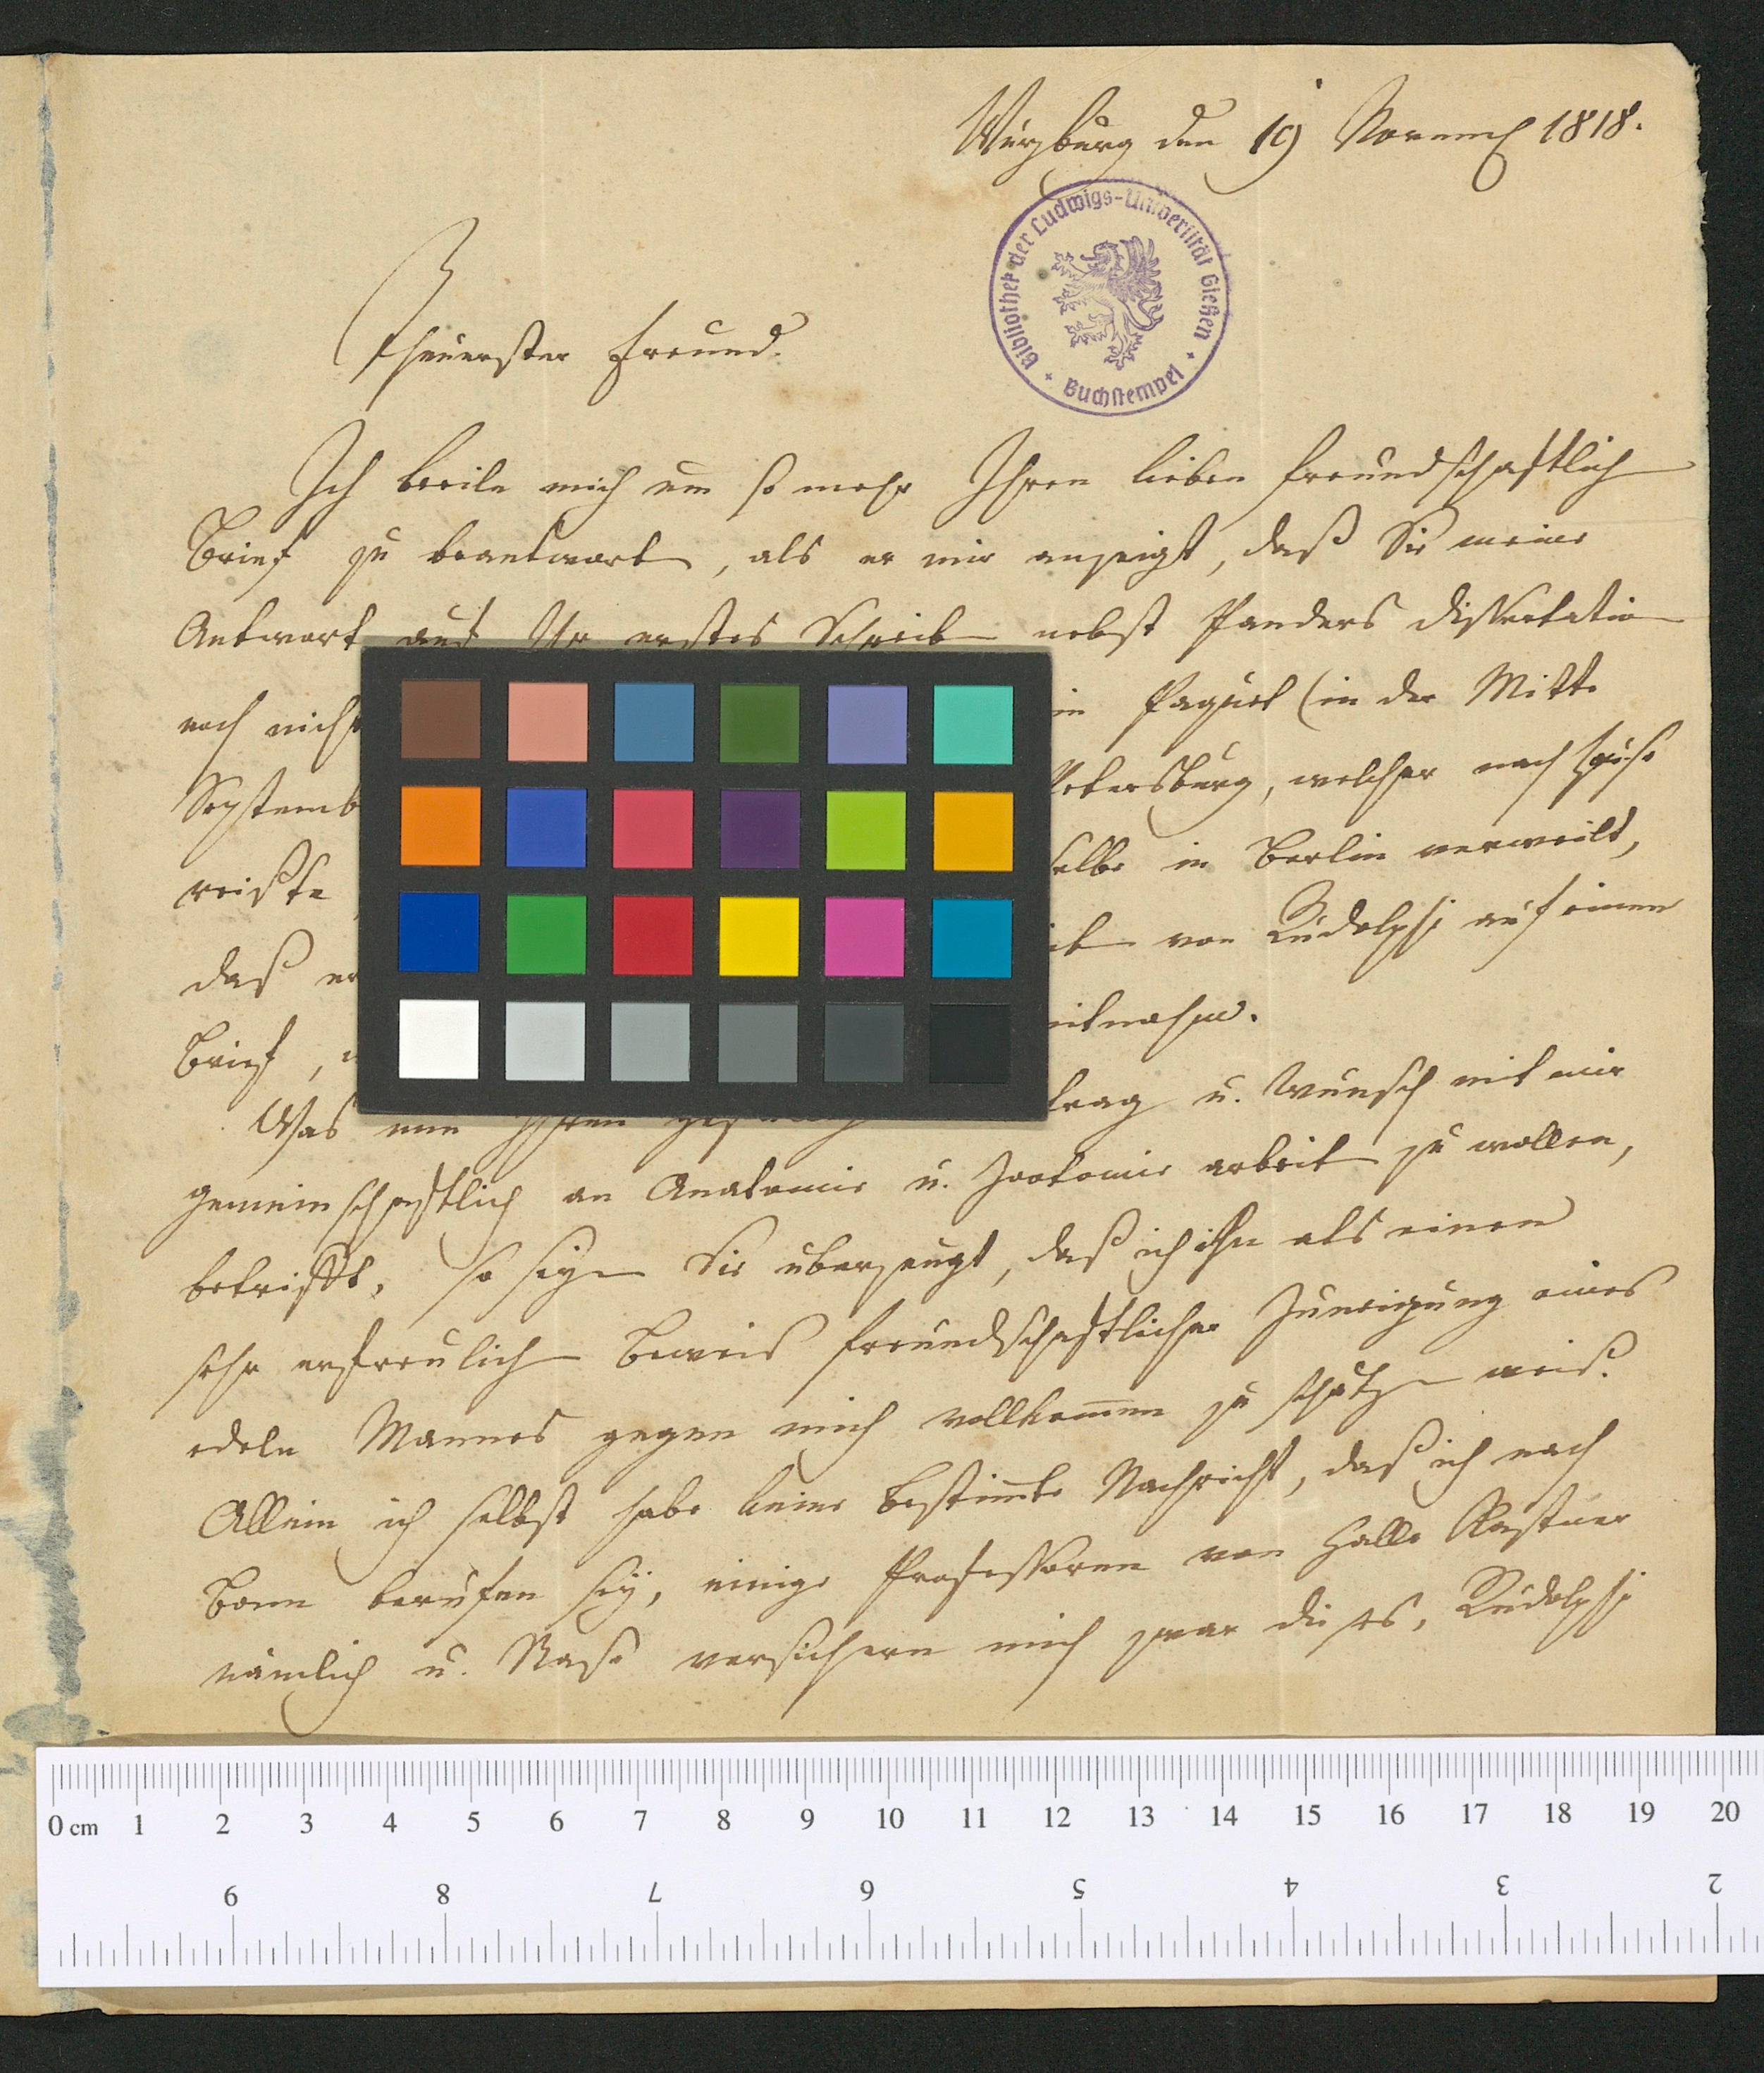 Würzburg den 19 Novemb 1818.
Bibliothek der Ludwigs-Universität Gießen
Buchstempel
Theuerster Freund.
Ich beeile mich um so mehr Ihren lieben freundschaftlichen
Brief zu beantworten, als er mir anzeigt, daß Sie meine
Antwort auf Ihr erstes Schreiben nebst Panders Dissertation
noch nicht in Paquet (in der Mitte
Septemb Petersburg, welcher nach Hause
reißte selbe in Berlin verweilt,
daß er von Rudolphi auf einen
Brief, mitnahm.
Was nun Ihren trag u. Wunsch mit mir
gemeinschaftlich an Anatomie u. Zootomie arbeiten zu wollen,
betrifft, so seyen Sie überzeugt, daß ich ihn als einen
sehr erfreulichen Beweis freundschaftlicher Zuneigung eines
edeln Mannes gegen mich vollkom̅en zu schätzen weiß.
Allein ich selbst habe keine bestim̅te Nachricht, daß ich nach
Bonn berufen sey, einige Professoren von Halle Kastner
nämlich u. Nasse versichern mich zwar dieses, Rudolphi
0 cm 1 2 3 4 5 6 7 8 9 10 11 12 13 14 15 16 17 18 19 20
9 8 7 6 5 4 3 2